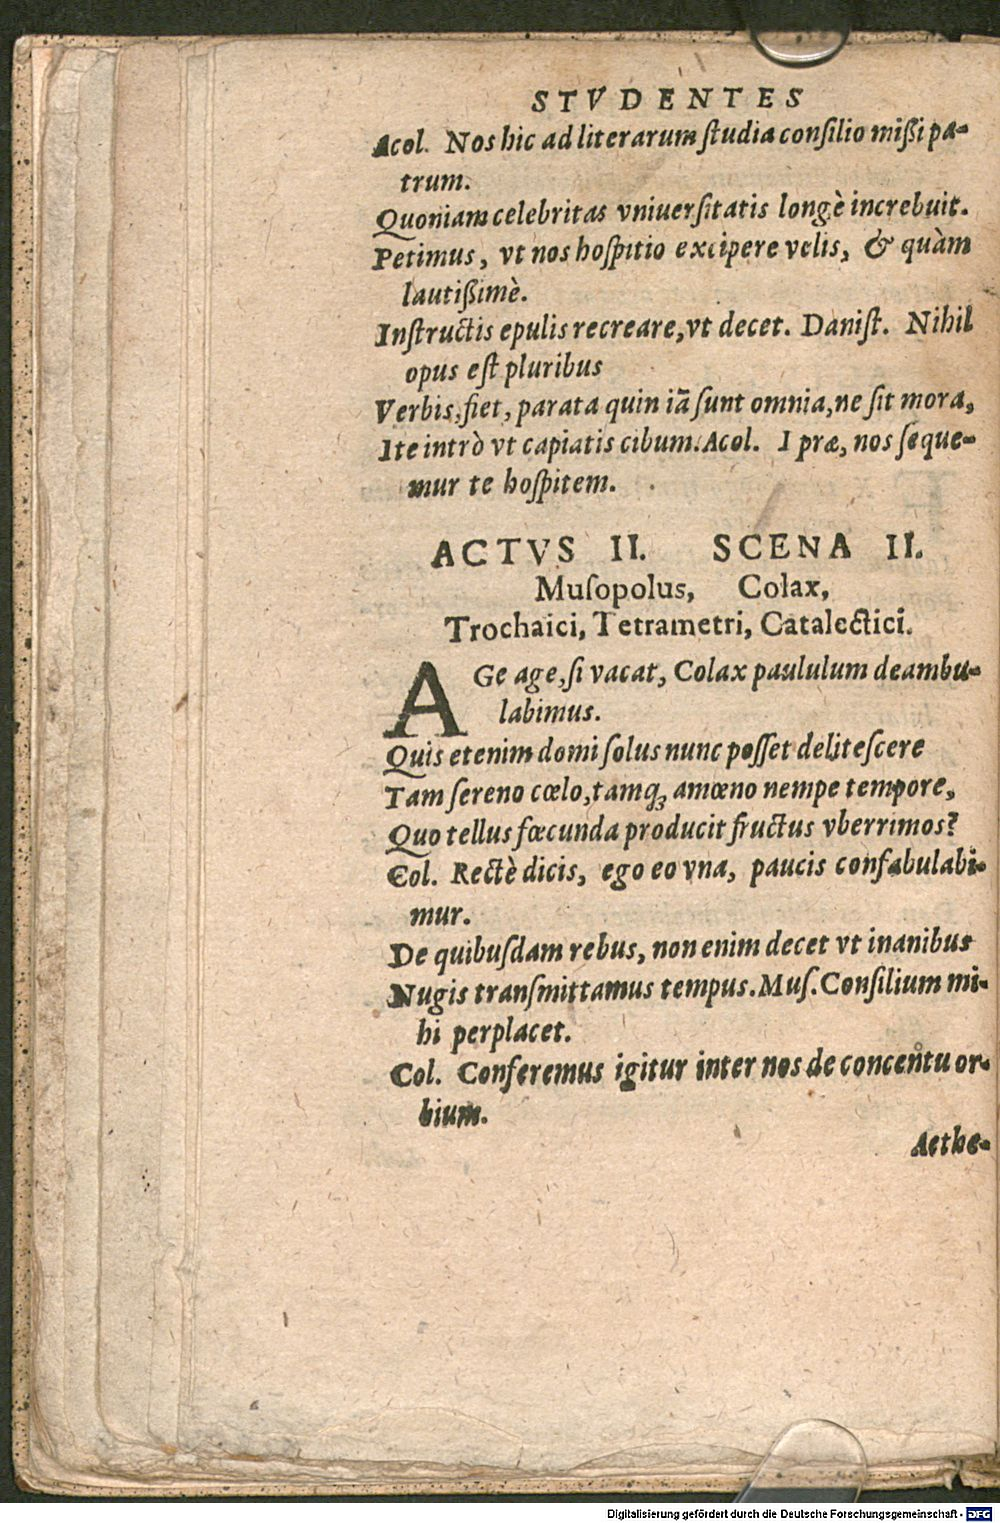 STVDENTES
Acol. Nos hic ad literarum ſtudia conſilio mißi pa-
trum.
Quoniam celebritas vniuerſitatis longè increbuit.
Petimus, vt nos hoſpitio excipere velis, & quàm
lautißimè.
Inſtructis epulis recreare, vt decet. Daniſt. Nihil
opus eſt pluribus
Verbis, fiet, parata quin iã ſunt omnia, ne ſit mora,
Ite intrò vt capiatis cibum. Acol. I præ, nos ſeque-
mur te hoſpitem.
ACTVS II. SCENA II.
Muſopolus, Colax,
Trochaici, Tetrametri, Catalectici.
AGe age, ſi vacat, Colax paululum deambu-
labimus.
Quis etenim domi ſolus nunc poſſet deliteſcere
Tam ſereno cœlo, tamq́ꝫ amœno nempe tempore,
Quo tellus fœcunda producit fructus vberrimos?
Col. Rectè dicis, ego eo vna, paucis confabulabi-
mur.
De quibuſdam rebus, non enim decet vt inanibus
Nugis tranſmittamus tempus. Muſ. Conſilium mi-
hi perplacet.
Col. Conferemus igitur inter nos de concentu or-
bium.
Aethe-
Digitalisierung gefördert durch die Deutsche Forschungsgemeinschaft - DFG